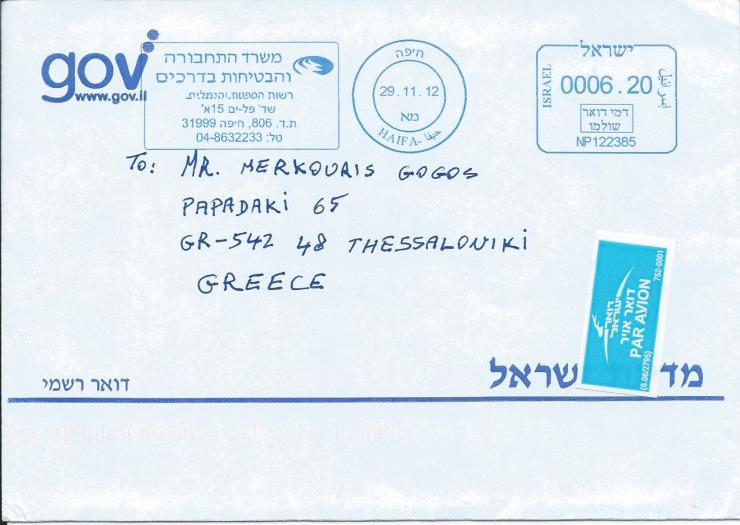 gov
www.gov.il
משרד התחבורה
והבטיחות בדרכים
רשות הספנות והנמלים
שד' פל-ים 15א'
ת.ד. 806, חיפה 31999
טל: 04-8632233
חיפה
29.11.12
מא
HAIFA- حيفا
ישראל
ISRAEL
0006.20
اسرائيل
דמי דואר
שולמו
NP122385
To: MR. MERKOURIS GOGOS
PAPADAKI 65
GR-542 48 THESSALONIKI
GREECE
752-0001
דואר
ישראל
דואר אויר
PAR AVION
(8.06/2795)
דואר רשמי
מד שראל